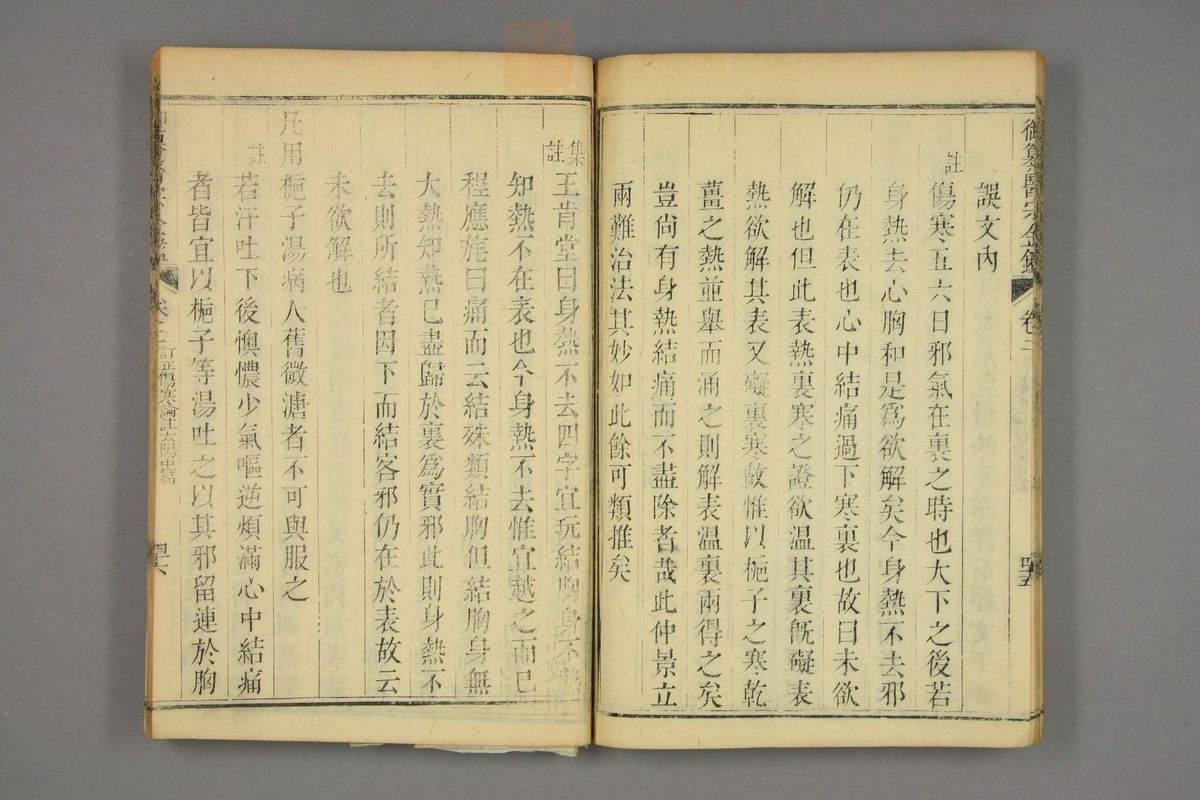 御纂醫宗金鑑 卷二 四五
誤文內
註
傷寒五六日邪氣在裏之時也大下之後若
身熱去心胸和是爲欲解矣今身熱不去邪
仍在表也心中結痛過下寒裏也故曰未欲
解也但此表熱裏寒之證欲温其裏旣礙表
熱欲解其表又礙裏寒故惟以梔子之寒乾
薑之熱並舉而涌之則解表温裏兩得之矣
豈尙有身熱結痛而不盡除者哉此仲景立
兩難治法其妙如此餘可類推矣
集註
王肯堂曰身熱不去四字宜玩結胸身不熱
知熱不在表也今身熱不去惟宜越之而已
程應旄曰痛而云結殊類結胸但結胸身無
大熱知熱已盡歸於裏爲實邪此則身熱不
去則所結者因下而結客邪仍在於表故云
未欲解也
凡用梔子湯病人舊微溏者不可與服之
註
若汗吐下後懊憹少氣嘔逆煩滿心中結痛
者皆宜以梔子等湯吐之以其邪留連於胸
卷二 訂正傷寒論註太陽中篇 四六